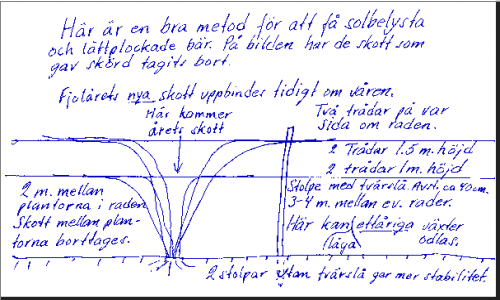 Här är en bra metod för att få solbelysta
och lättplockade bär. På bilden har de skott som
gav skörd tagits bort.
Fjolårets nya skott uppbindes tidigt om våren.
Här kommer
årets skott
Två trådar på var
sida om raden.
2 Trådar 1.5 m. höjd
2 trådar 1m. höjd
2 m. mellan
plantorna i raden
Skott mellan plan-
torna borttages.
Stolpe med tvärslå. Avst. ca 40 cm.
3-4 m. mellan ev. rader.
Här kan ettåriga växter
(låga) odlas.
2 stolpar utan tvärslå ger mer stabilitet.